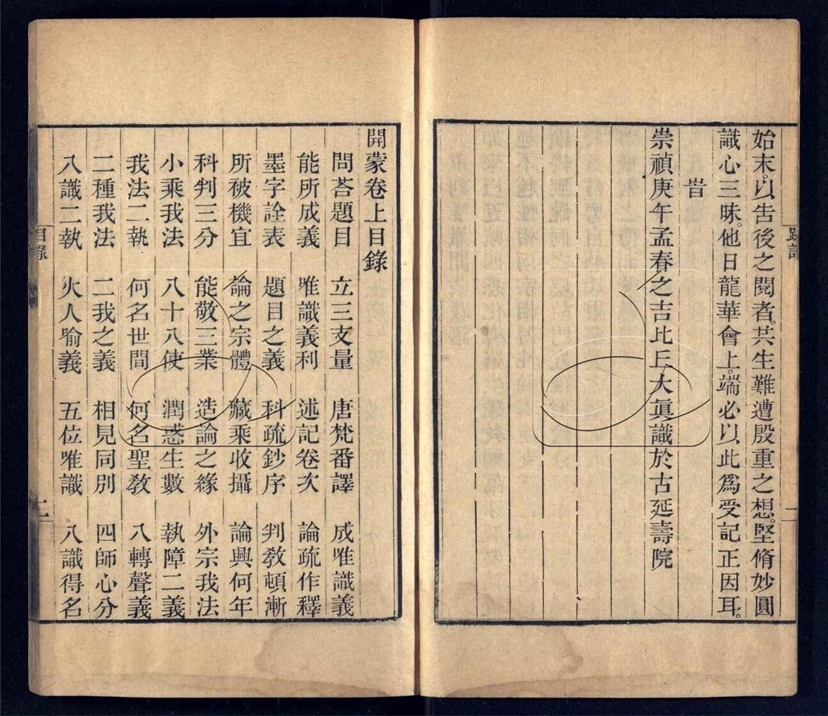 始末。以告後之閱者。共生難遭殷重之想。堅脩妙圓
識心三昧。他日龍華會上。端必以此爲受記正因耳。
旹
崇禎庚午孟春之吉比丘大眞識於古延壽院
一
開蒙卷上目錄
問荅題目 立三支量 唐梵番譯 成唯識義
能所成義 唯識義利 述記卷次 論疏作釋
墨字詮表 題目之義 科疏鈔序 判敎頓漸
所破機宜 論之宗體 藏乘收攝 論興何年
科判三分 能敬三業 造論之緣 外宗我法
小乘我法 八十八使 潤惑生數 執障二義
我法二執 何名世間 何名聖敎 八轉聲義
二種我法 二我之義 相見同別 四師心分
八識二執 火人喻義 五位唯識 八識得名
目錄
二